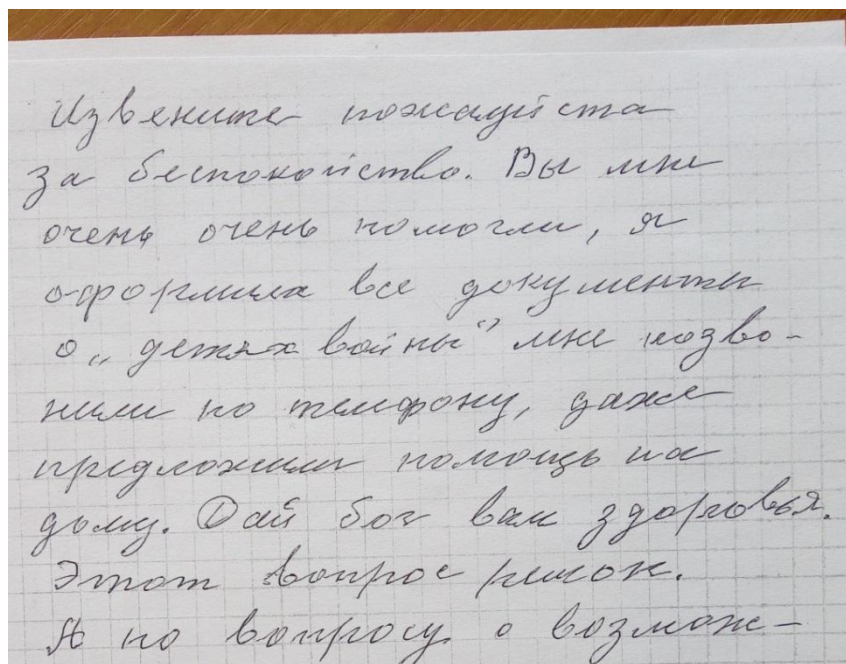 Извените пожалуйста
за беспокойство. Вы мне
очень очень помогли, я
оформила все документы
о „детях войны" мне позво-
нили по телефону, даже
предложили помощь на
дому. Дай бог вам здоровья.
Этот вопрос решон.
А по вопросу о возмож-